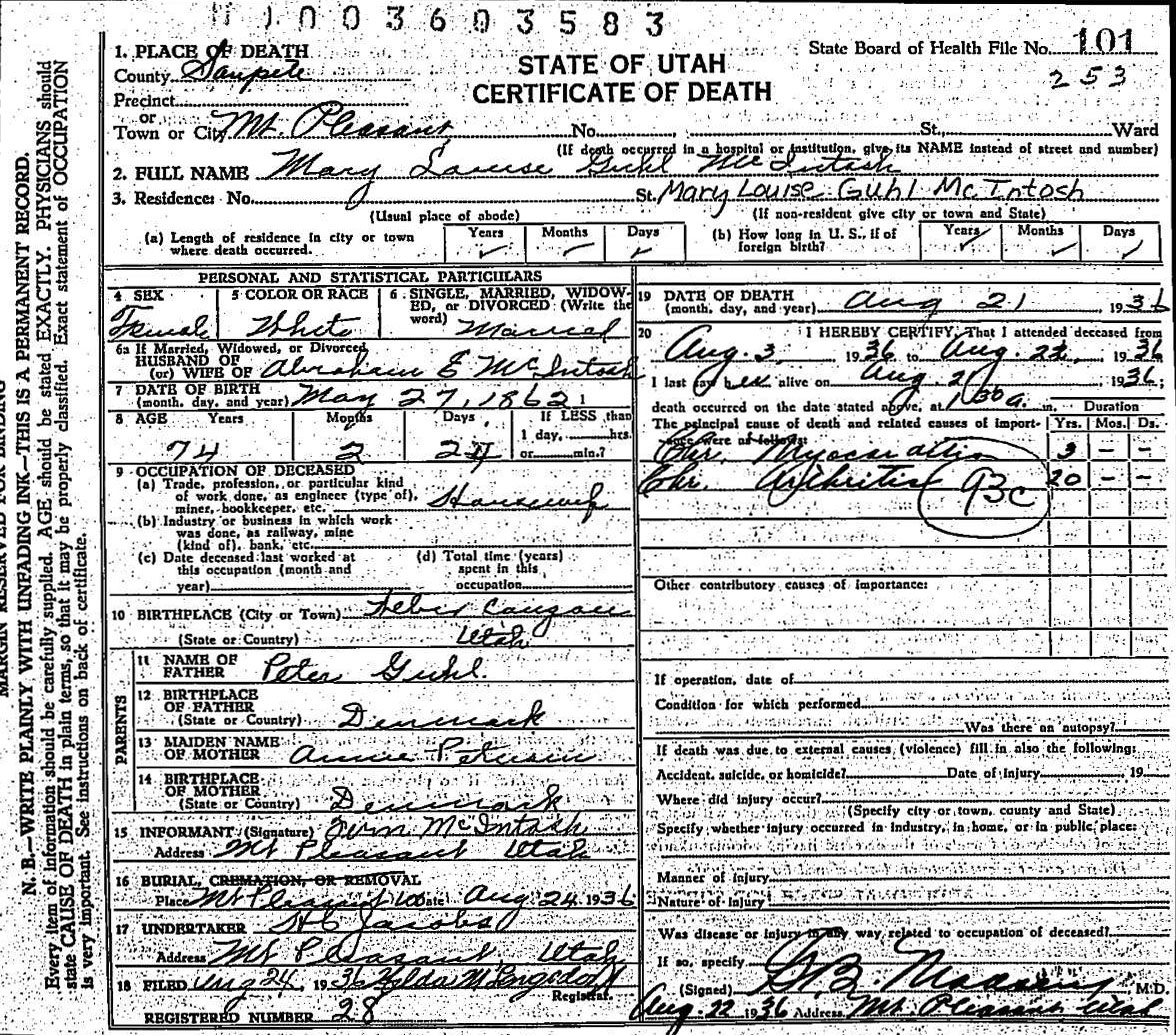 1003603583
1. PLACE OF DEATH
County Sanpete
STATE OF UTAH
CERTIFICATE OF DEATH
State Board of Health File No. 101
253
Precinct
or
Town or City Mt. Pleasant, No. St., Ward
(If death occurred in a hospital or institution, give its NAME instead of street and number)
2. FULL NAME Mary Louise Guhl McIntosh
3. Residence: No. St. Mary Louise Guhl McIntosh
(Usual place of abode) (If non-resident give city or town and State)
(a) Length of residence in city or town where death occurred. Years ✓ Months ✓ Days ✓
(b) How long in U. S., if of foreign birth? Years ✓ Months ✓ Days ✓
PERSONAL AND STATISTICAL PARTICULARS
4 SEX Female
5 COLOR OR RACE White
6 SINGLE, MARRIED, WIDOWED, or DIVORCED (Write the word) Married
6a If Married, Widowed, or Divorced
HUSBAND OF
(or) WIFE OF Abraham E McIntosh
7 DATE OF BIRTH
(month, day, and year) May 27, 1862
8 AGE Years Months Days If LESS than
1 day, hrs.
74 2 or min.?
9 OCCUPATION OF DECEASED
(a) Trade, profession, or particular kind
of work done, as engineer (type of),
miner, bookkeeper, etc. Housewife
(b) Industry or business in which work
was done, as railway, mine
(kind of), bank, etc.
(c) Date deceased last worked at
this occupation (month and
year)
(d) Total time (years)
spent in this
occupation
10 BIRTHPLACE (City or Town)
(State or Country) Utah
PARENTS
11 NAME OF
FATHER Peter Guhl.
12 BIRTHPLACE
OF FATHER
(State or Country) Denmark
13 MAIDEN NAME
OF MOTHER Annie
14 BIRTHPLACE
OF MOTHER
(State or Country) Denmark
15 INFORMANT (Signature) McIntosh
Address Mt Pleasant Utah
16 BURIAL, CREMATION, OR REMOVAL
Place Mt Pleasant Date Aug 24 1936
17 UNDERTAKER Jacobs
Address Mt Pleasant, Utah
18 FILED Aug 24, 1936 Hilda M
Registrar.
REGISTERED NUMBER 28
19 DATE OF DEATH
(month, day, and year) Aug 21 1936
20 I HEREBY CERTIFY, That I attended deceased from
Aug. 3 1936 to Aug. 1936
I last saw her alive on Aug 1936;
death occurred on the date stated above, at 1:30 a. m.
Duration
The principal cause of death and related causes of import-
ance were as follows: Yrs. Mos. Ds.
Chr. Myocarditis 3 - -
Chr. Arthritis 20 - -
93c
Other contributory causes of importance:
If operation, date of
Condition for which performed
Was there an autopsy?
If death was due to external causes (violence) fill in also the following:
Accident, suicide, or homicide? Date of injury 19
Where did injury occur?
(Specify city or town, county and State)
Specify whether injury occurred in industry, in home, or in public place:
Manner of injury
Nature of injury
Was disease or injury in any way related to occupation of deceased?
If so, specify
(Signed) M.D.
Aug. 22 1936 Address Mt. Pleasant Utah
MARGIN RESERVED FOR BINDING
N. B.—WRITE PLAINLY WITH UNFADING INK—THIS IS A PERMANENT RECORD.
Every item of information should be carefully supplied. AGE should be stated EXACTLY. PHYSICIANS should
state CAUSE OF DEATH in plain terms, so that it may be properly classified. Exact statement of OCCUPATION
is very important. See instructions on back of certificate.